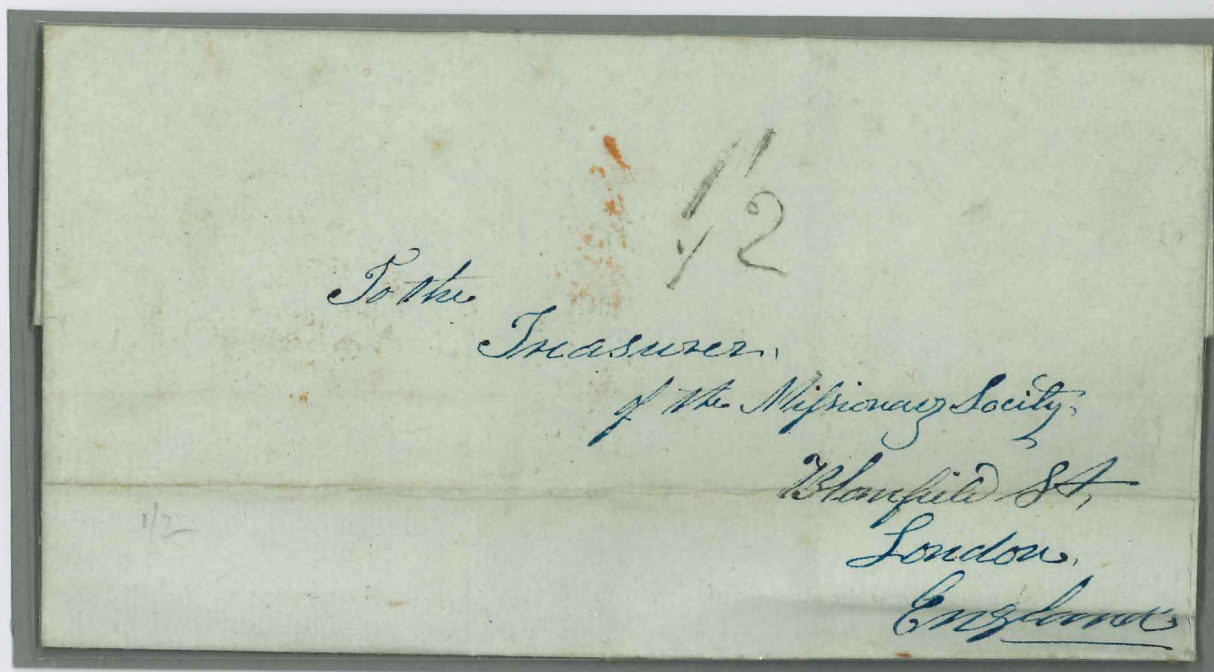 1/2
To the
Treasurer.
of the Missionary Society,
Blomfield St,
London.
England
1/2